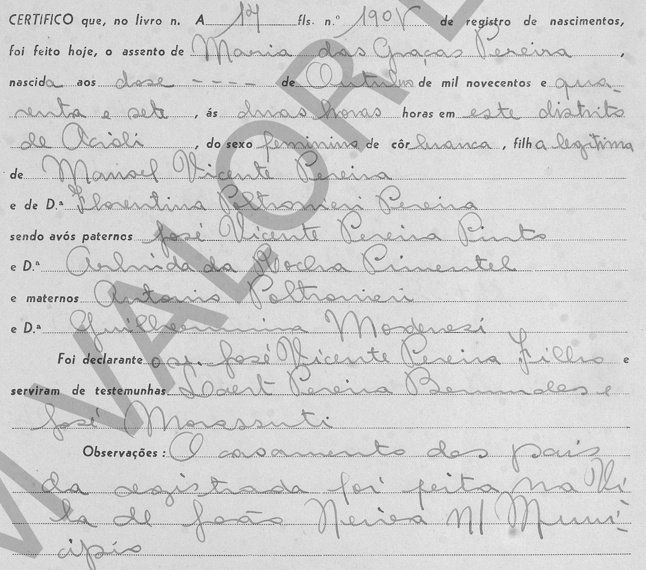 CERTIFICO que, no livro n. A 17 fls. n.º 190V de registro de nascimentos,
foi feito hoje, o assento de Maria das Graças Pereira,
nascida aos dose ---- de Outubro de mil novecentos e qua-
renta e sete, ás duas horas horas em este distrito
de Acioli, do sexo feminino de côr branca, filha legitima
de Manoel Vicente Pereira
e de D.ª Florentina Poltronieri Pereira
sendo avós paternos José Vicente Pereira Pinto
e D.ª da Rocha Pimentel
e maternos Antonio Poltronieri
e D.ª Guilhermina Modenesi
Foi declarante o sr. José Vicente Pereira Filho e
serviram de testemunhas Pereira Bermudes e
José Morassuti
Observações: O casamento dos pais
da registrada foi feita na Vi-
la de João Neiva N/ Muni-
cipio
VALOR